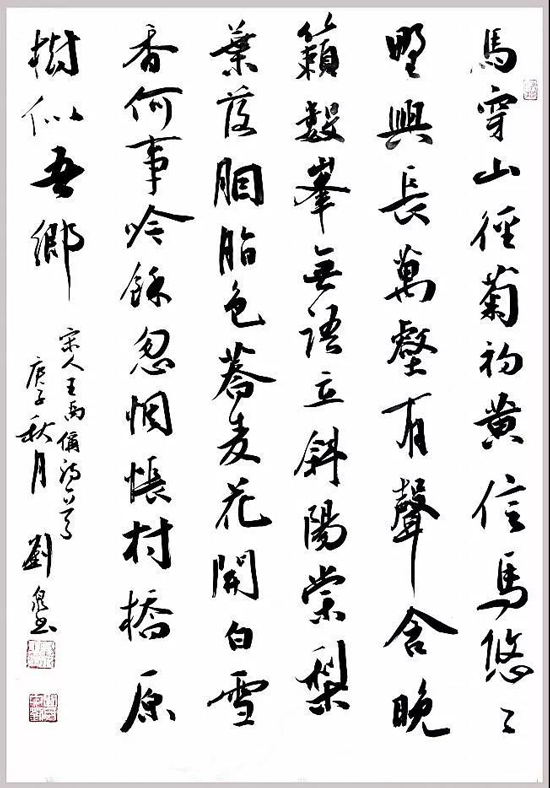 馬穿山徑菊初黄信馬悠々
野興長萬壑有聲含晚
籟數峯無語立斜陽棠梨
葉落胭脂色蕎麦花開白雪
香何事吟餘忽惆悵村橋原
樹似吾鄉
宋人王禹偁詩一首
庚子秋月劉泉书